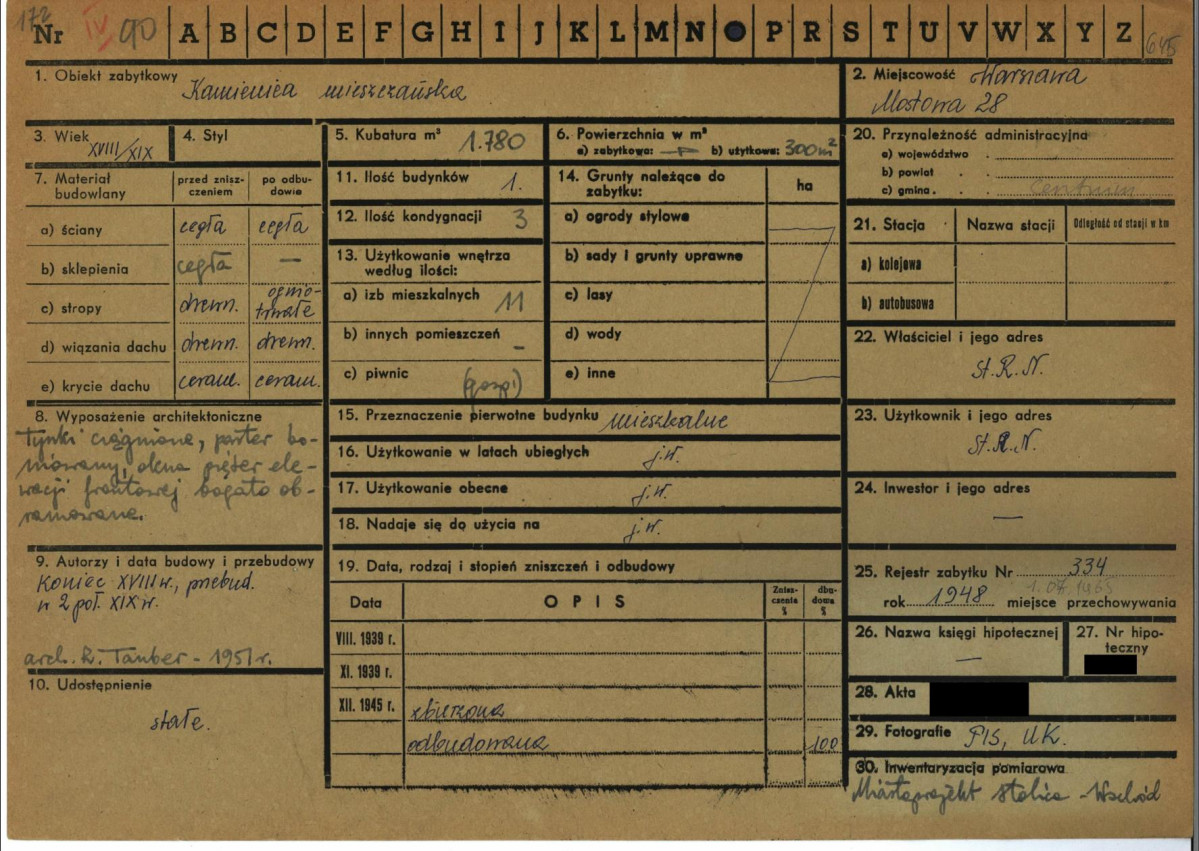 172
Nr IV 90 A B C D E F G H I J K L M N O P R S T U V W X Y Z 645
1. Obiekt zabytkowy Kamienica mieszczańska
2. Miejscowość Warszawa
Mostowa 28
3. Wiek XVIII/XIX
4. Styl
5. Kubatura m³ 1.780
6. Powierzchnia w m²
a) zabytkowa: — b) użytkowa: 300m²
20. Przynależność administracyjna
a) województwo
b) powiat
c) gmina Centrum
7. Materiał budowlany
przed zniszczeniem
po odbudowie
a) ściany cegła cegła
b) sklepienia cegła —
c) stropy drewn. ogniotrwałe
d) wiązania dachu drewn. drewn.
e) krycie dachu ceram. ceram.
11. Ilość budynków 1.
12. Ilość kondygnacji 3
13. Użytkowanie wnętrza
według ilości:
a) izb mieszkalnych 11
b) innych pomieszczeń –
c) piwnic (gosp.)
14. Grunty należące do
zabytku:
ha
a) ogrody stylowe
b) sady i grunty uprawne
c) lasy
d) wody
e) inne
21. Stacja Nazwa stacji Odległość od stacji w km
a) kolejowa
b) autobusowa
22. Właściciel i jego adres
St.R.N.
8. Wyposażenie architektoniczne
Tynki ciągnione, parter bo-
niowany, okna pięter ele-
wacji frontowej bogato ob-
ramowane.
15. Przeznaczenie pierwotne budynku mieszkalne
16. Użytkowanie w latach ubiegłych j.w.
17. Użytkowanie obecne j.w.
18. Nadaje się do użycia na j.w.
23. Użytkownik i jego adres
St.R.N.
24. Inwestor i jego adres
—
9. Autorzy i data budowy i przebudowy
Koniec XVIII w., przebud.
w 2 poł. XIX w.
arch. R. Tauber - 1951 r.
10. Udostępnienie
stałe.
19. Data, rodzaj i stopień zniszczeń i odbudowy
Data OPIS Zniszczenia % dbudowa %
VIII. 1939 r.
XI. 1939 r.
XII. 1945 r. zburzona
odbudowana 100
25. Rejestr zabytku Nr 334
1.07.1965
rok 1948 miejsce przechowywania
26. Nazwa księgi hipotecznej
—
27. Nr hipo-
teczny
28. Akta
29. Fotografie PIS, UK.
30. Inwentaryzacja pomiarowa
Miastoprojekt Stolica - Wschód